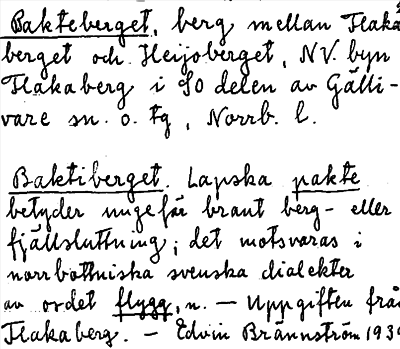 Bakteberget, berg mellan Flakå
berget och Heijoberget, NV. byn
Flakaberg i SO delen av Gälli-
vare sn. o. tg, Norrb. l.
Baktiberget. Lapska pakte
betyder ungefär brant berg- eller
fjällsluttning; det motsvaras i
norrbottniska svenska dialekter
av ordet flygg, n. — Uppgiften från
Flakaberg. — Edvin Brännström 1939